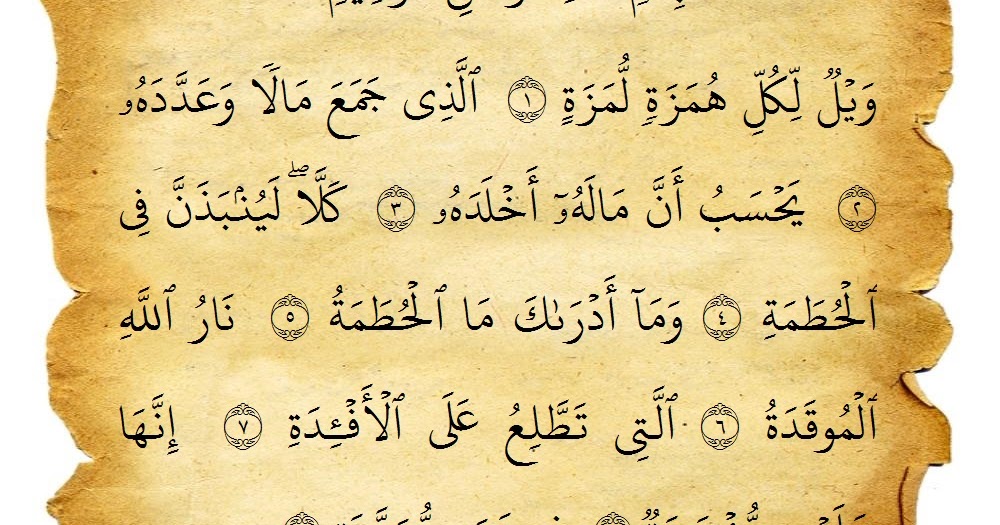 وَيْلٌ لِّكُلِّ هُمَزَةٍ لُّمَزَةٍ ۝١ ٱلَّذِى جَمَعَ مَالًا وَعَدَّدَهُۥ
۝٢ يَحْسَبُ أَنَّ مَالَهُۥٓ أَخْلَدَهُۥ ۝٣ كَلَّا ۖ لَيُنۢبَذَنَّ فِى
ٱلْحُطَمَةِ ۝٤ وَمَآ أَدْرَىٰكَ مَا ٱلْحُطَمَةُ ۝٥ نَارُ ٱللَّهِ
ٱلْمُوقَدَةُ ۝٦ ٱلَّتِى تَطَّلِعُ عَلَى ٱلْأَفْـِٔدَةِ ۝٧ إِنَّهَا